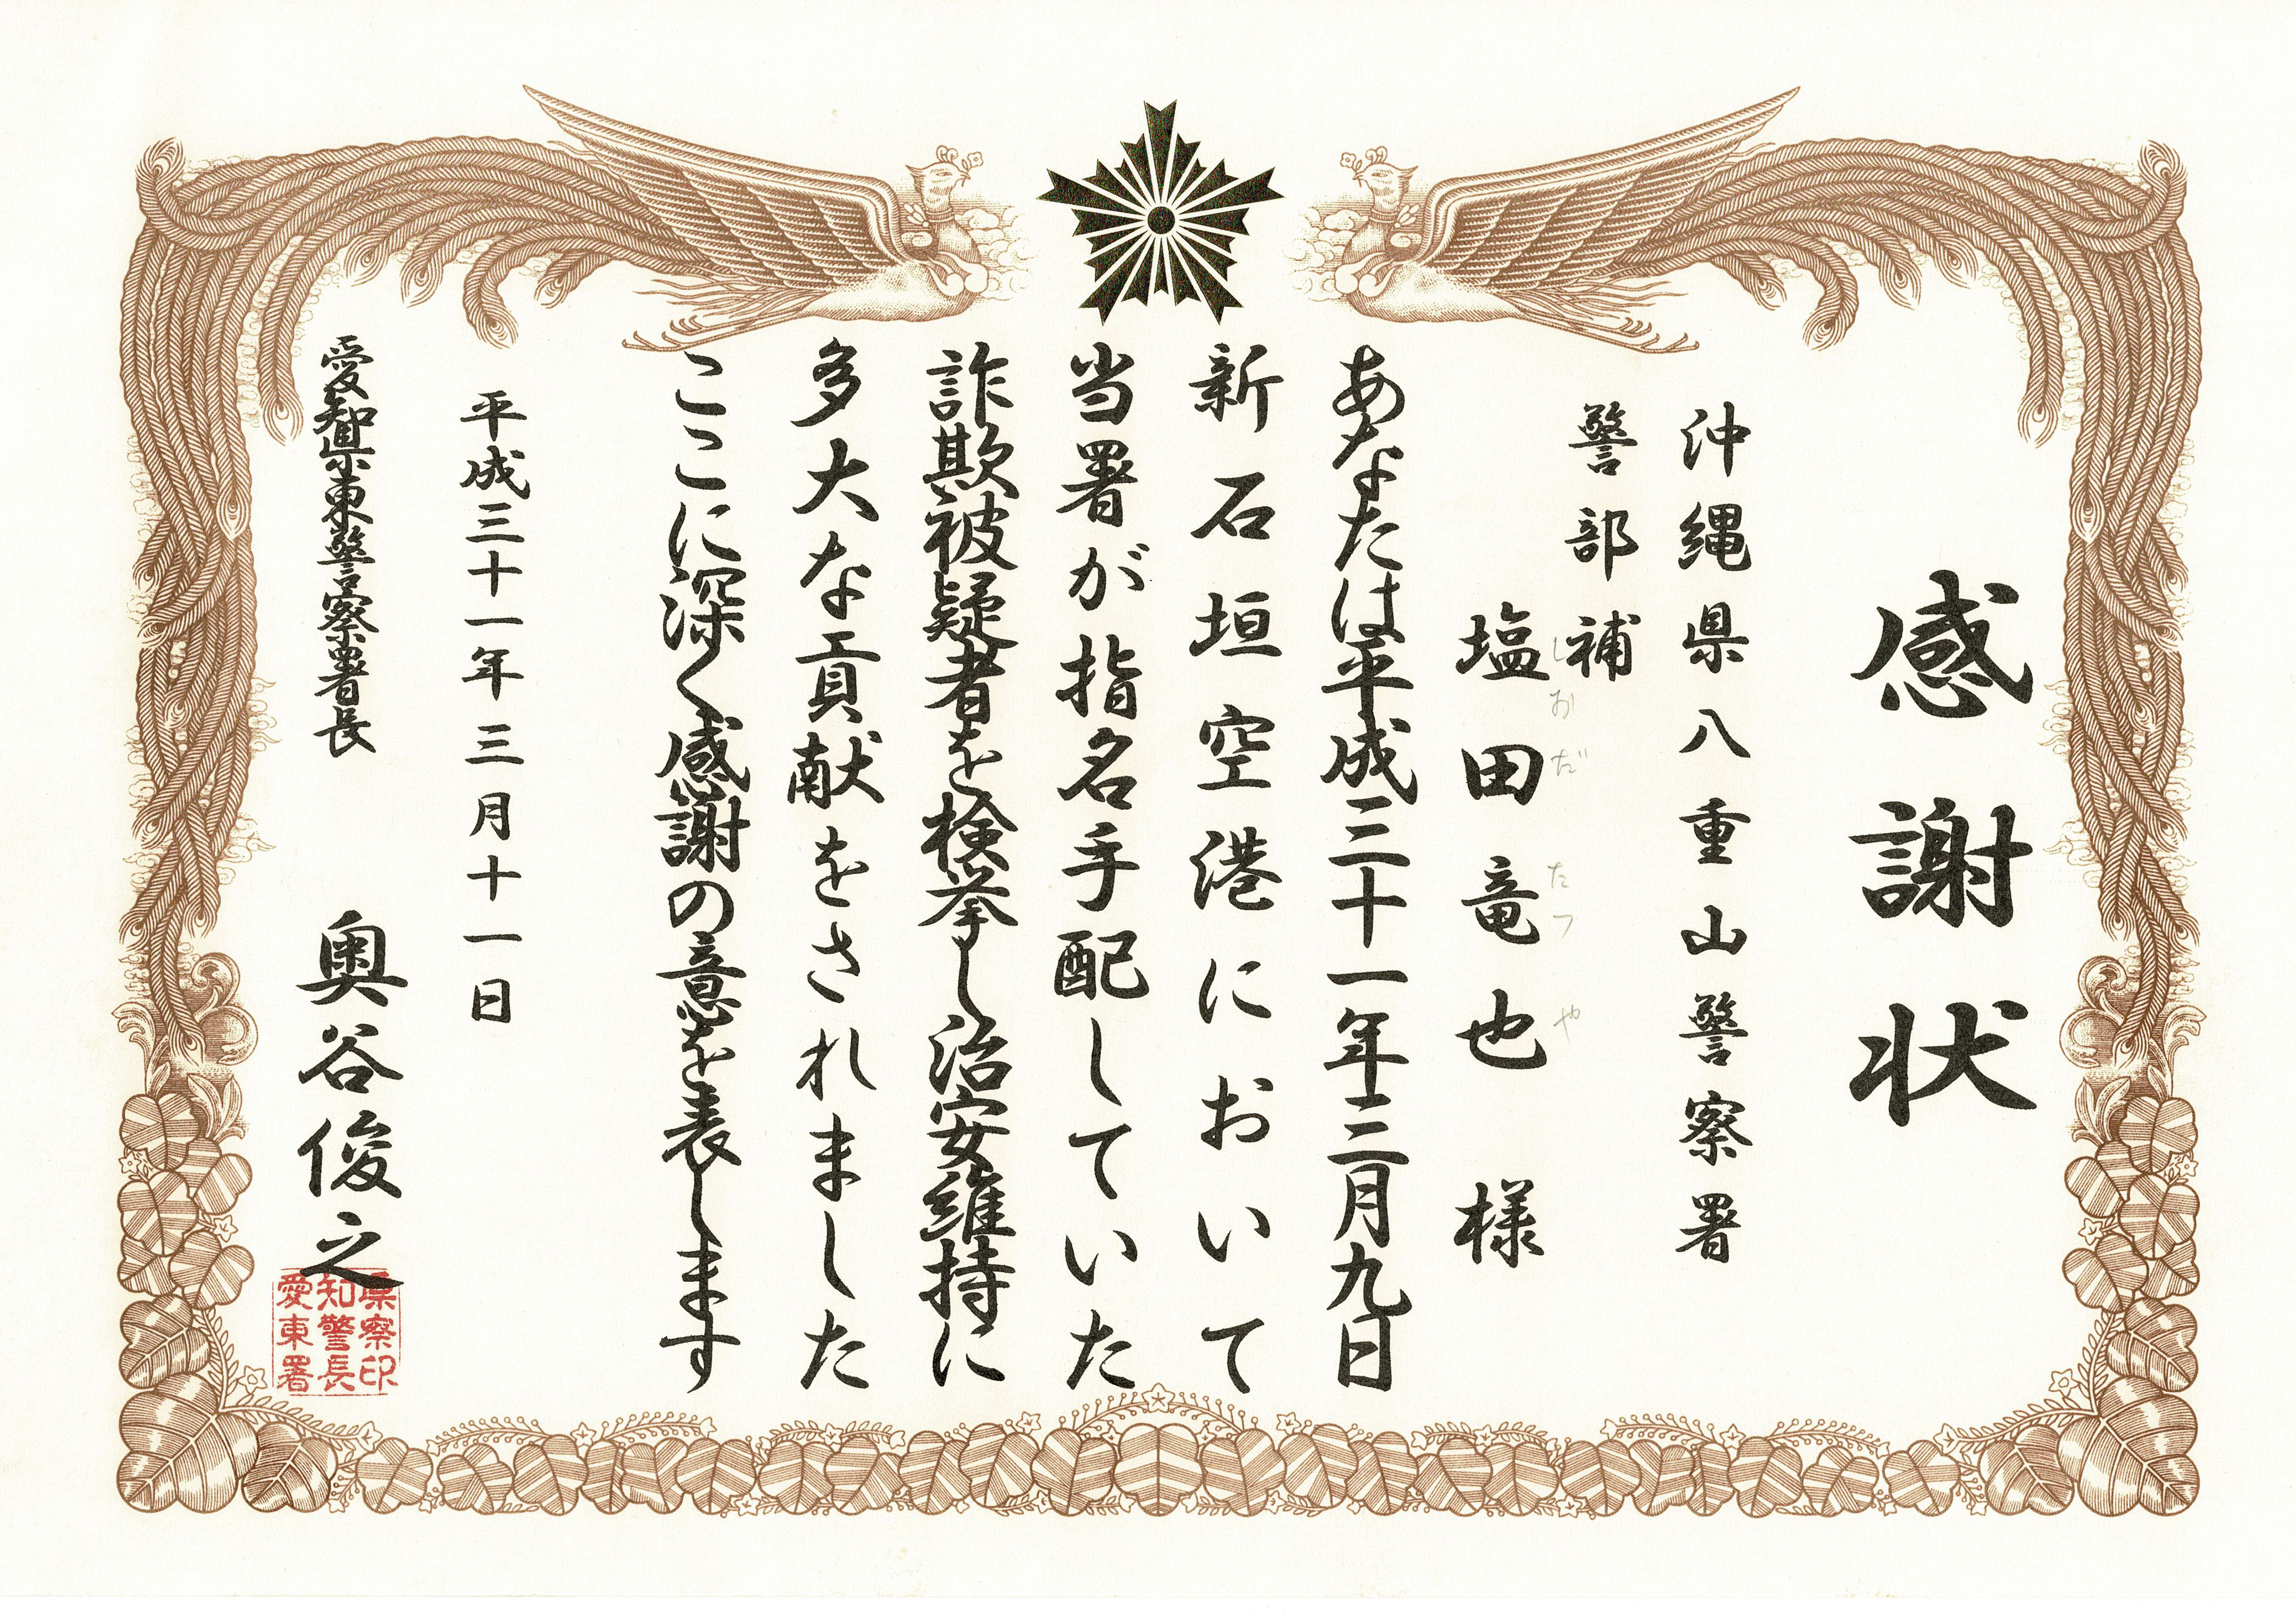 感謝状
沖縄県八重山警察署
警部補
塩田竜也 様
しおだ たつや
あなたは平成三十一年二月九日
新石垣空港において
当署が指名手配していた
詐欺被疑者を検挙し治安維持に
多大な貢献をされました
ここに深く感謝の意を表します
平成三十一年三月十一日
愛知県東警察署長
奥谷俊之
愛知県
東警察
署長印